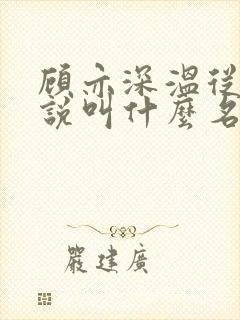 顾亦深溫從
說叫什麼名
嚴建廣